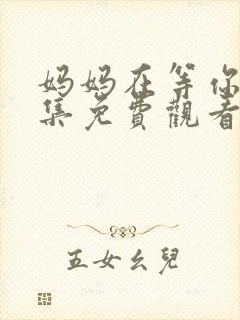 妈妈在等你
集免費觀看
五女幺兒